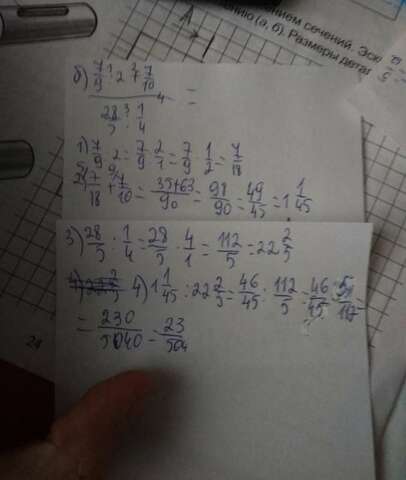 нием сечений. Эск
ению (а, б). Размеры дета
б) 7/9 : 2 + 7/10
28/5 : 1/4 =
1) 7/9 : 2 = 7/9 : 2/1 = 7/9 · 1/2 = 7/18
2) 7/18 + 7/10 = 35+63/90 = 98/90 = 49/45 = 1 1/45
3) 28/5 : 1/4 = 28/5 · 4/1 = 112/5 = 22 2/5
4) 1 1/45 : 22 2/5 = 46/45 : 112/5 = 46/45 · 5/112 =
= 230/5040 = 23/504